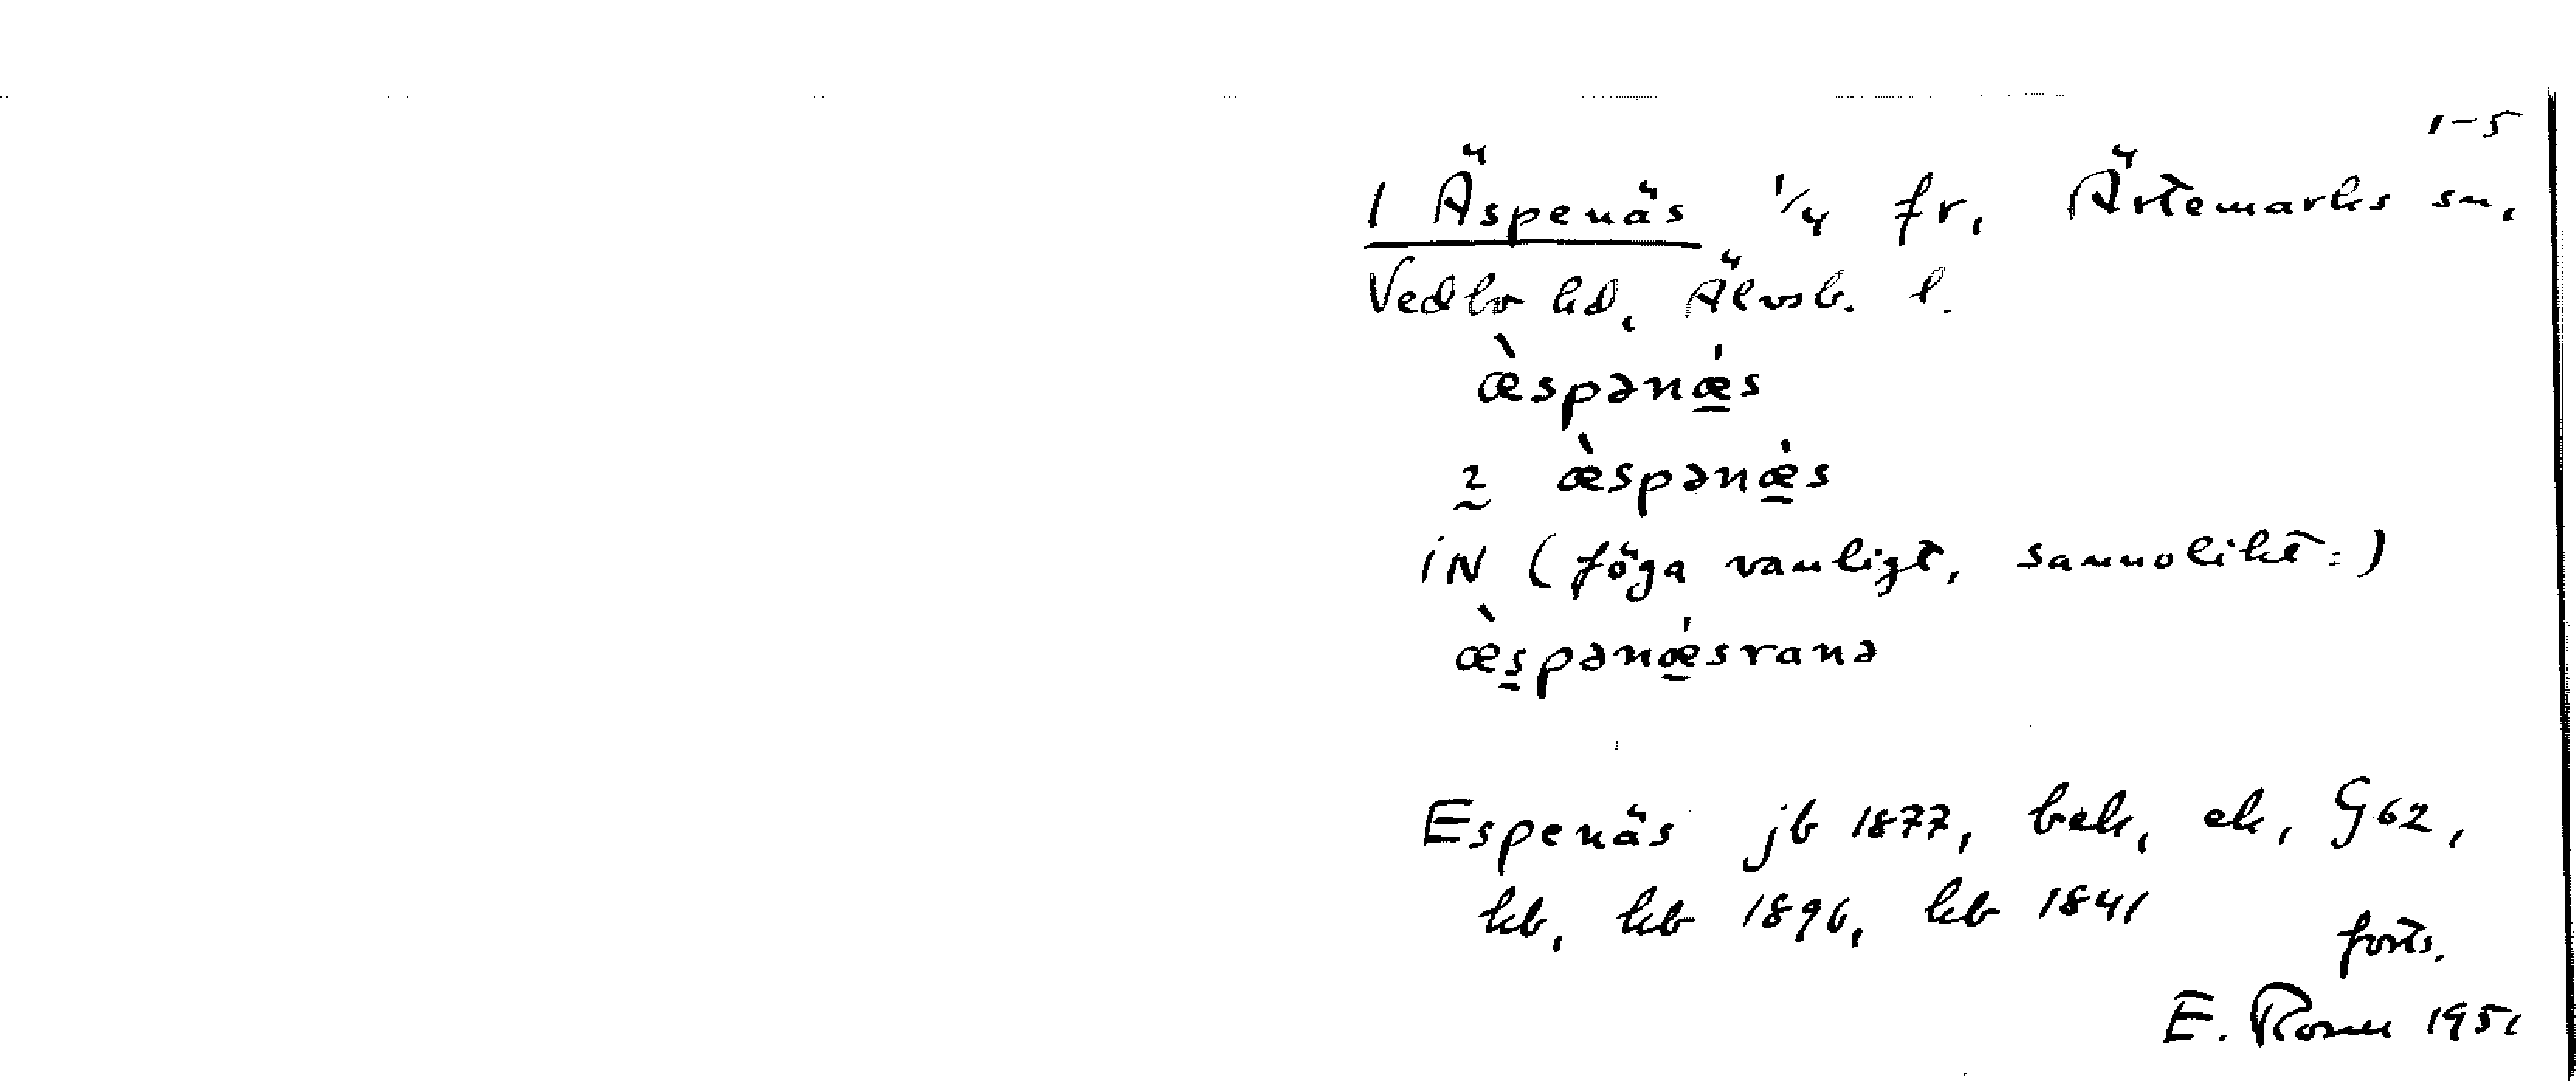 1-5
1 Äspenäs 1/4 fr, Ärtemarks sn,
Vedbo hd, Älvsb. l.
æ̀spənǽ̱s
2̰ æ̀spənǽ̱s
iN (föga vanligt, sannolikt:)
æ̀s̱pənǽ̱srana
Espenäs jb 1877, bek, ek, G62,
kb, kb 1896, kb 1841
forts.
E. Rosell 1951